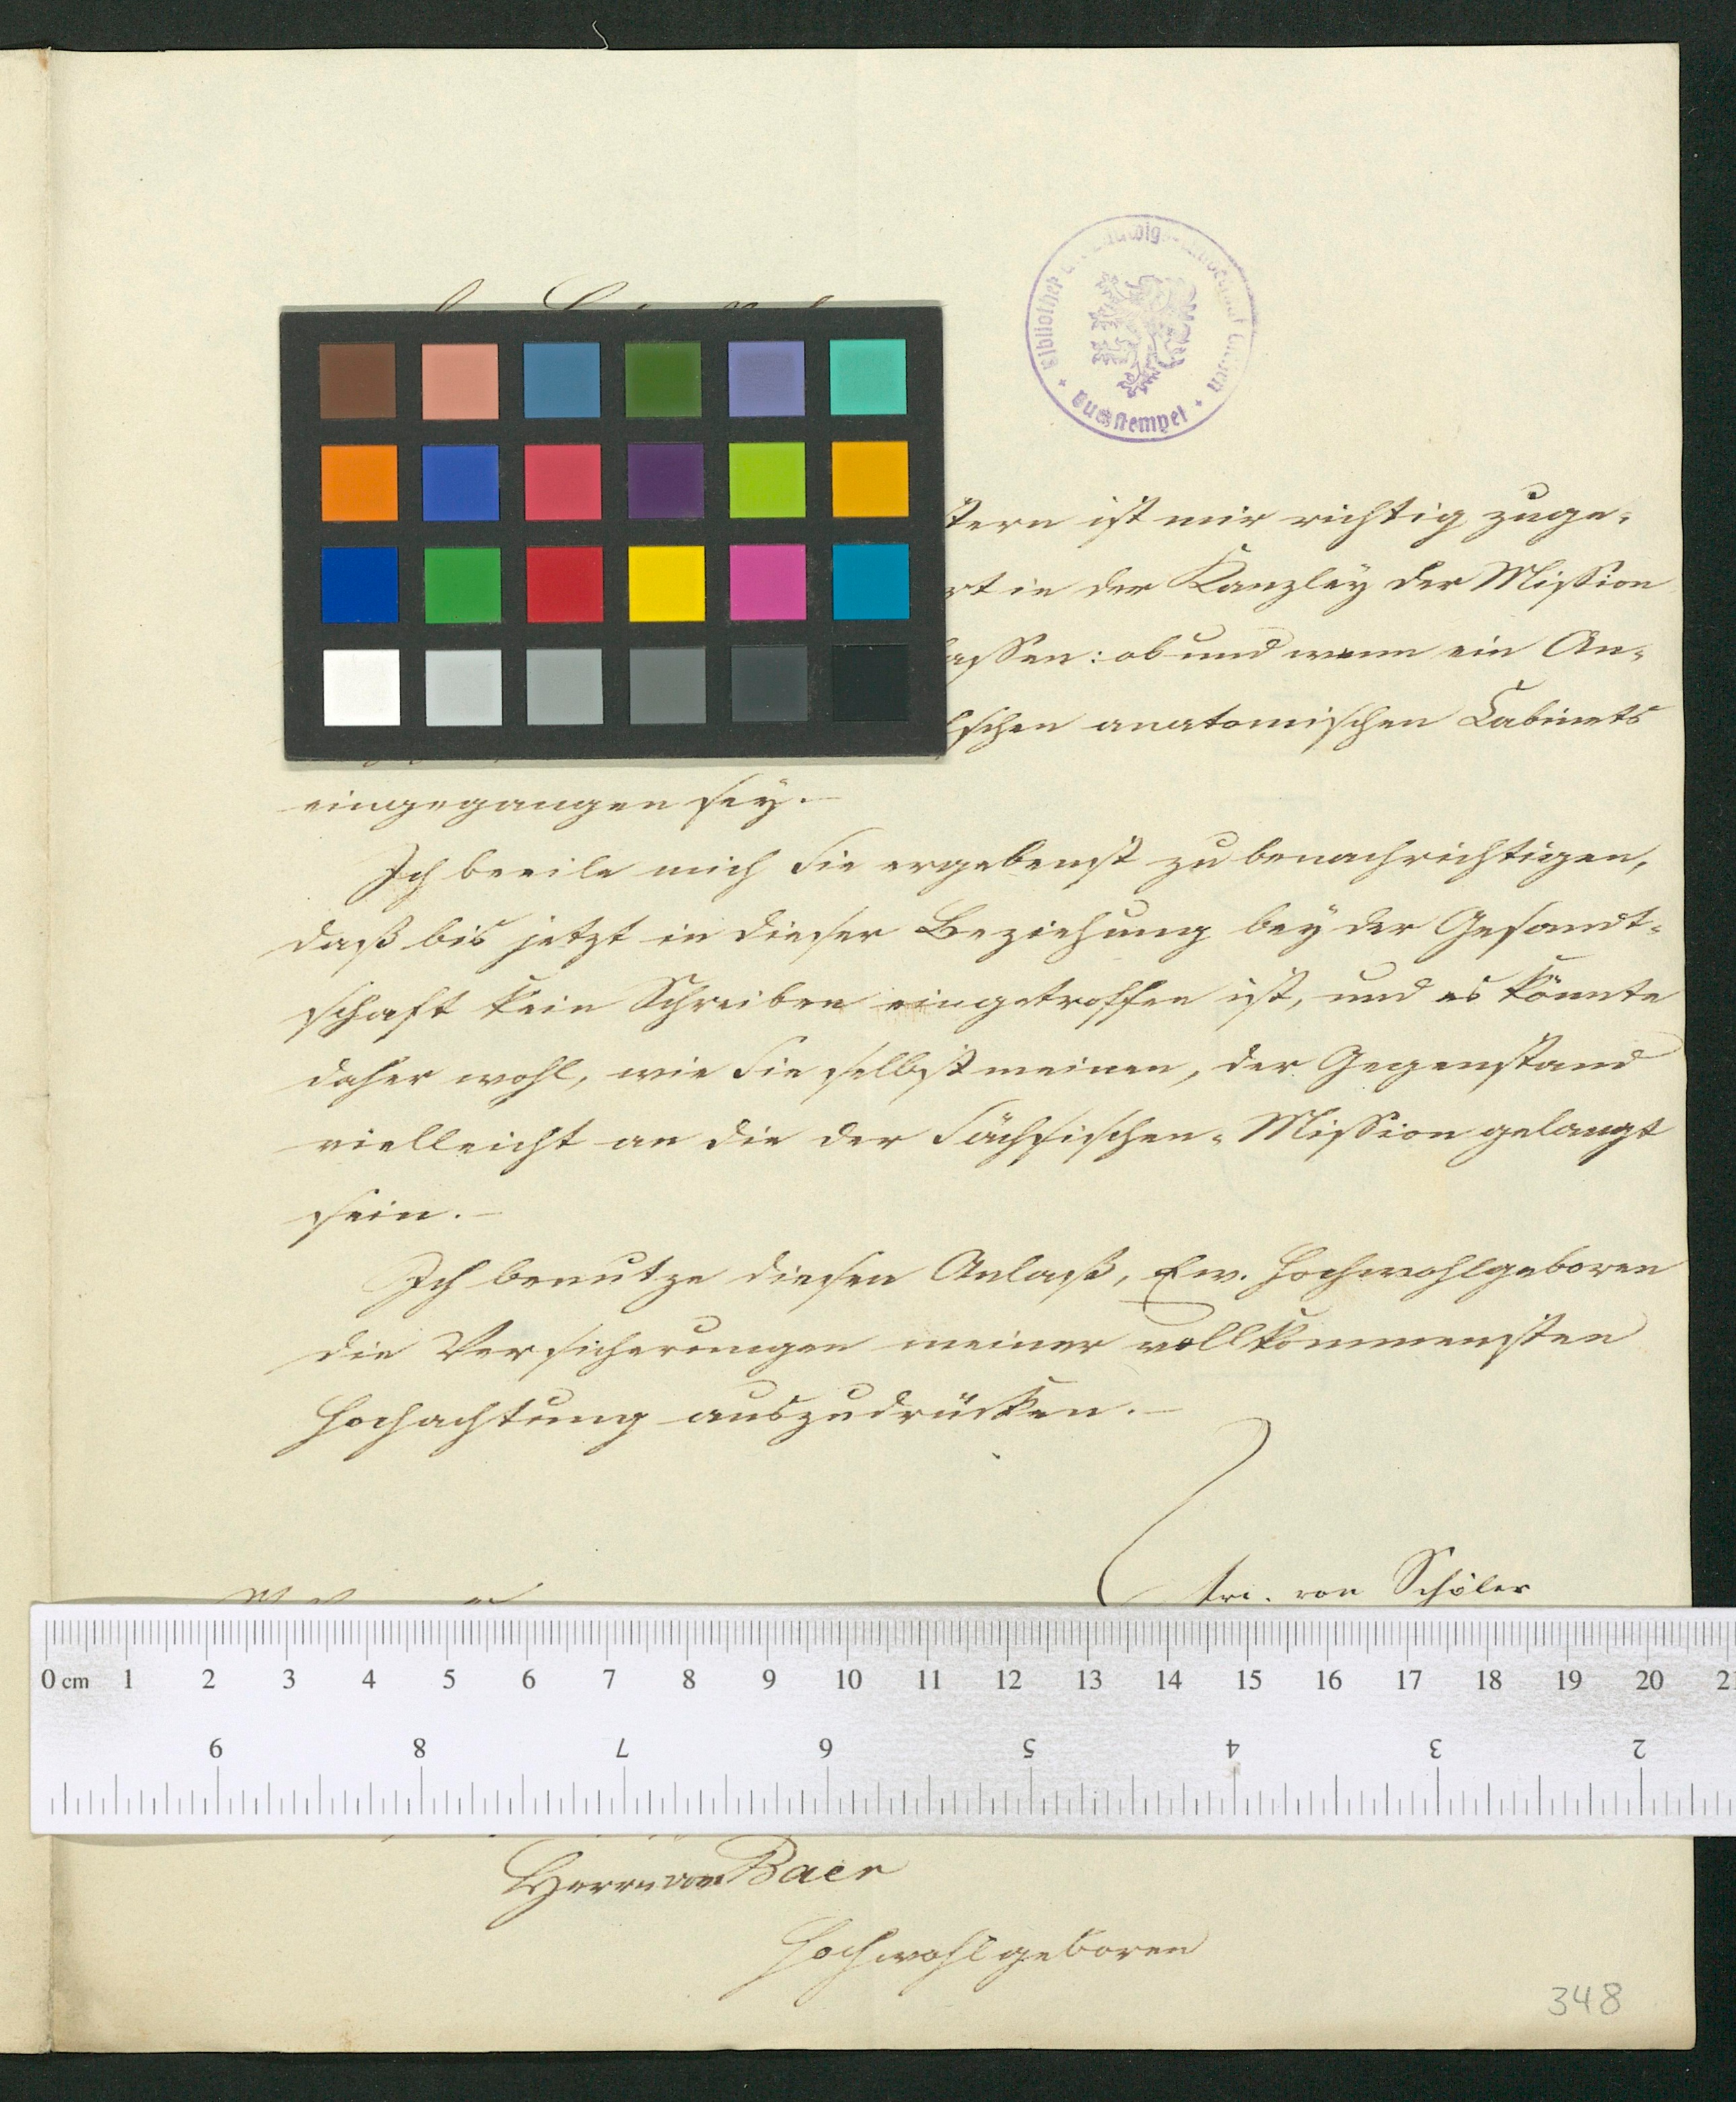 Bibliothek
Buchstempel
ist mir richtig zuge-
in der Kanzley der Mission
ob und wann ein An-
anatomischen Cabinets
eingegangen sey.—
Ich beeile mich Sie ergebenst zu benachrichtigen,
daß bis jetzt in dieser Beziehung bey der Gesandt-
schaft kein Schreiben eingetroffen ist, und es könnte
daher wohl, wie Sie selbst meinen, der Gegenstand
vielleicht an die der Sächsischen-Mission gelangt
sein.—
Ich benutze diesen Anlaß, Ew. Hochwohlgeboren
die Versicherungen meiner vollkommensten
Hochachtung auszudrücken.—
von Schöler
0 cm 1 2 3 4 5 6 7 8 9 10 11 12 13 14 15 16 17 18 19 20
9 8 7 6 5 4 3 2
Herrn von Baer
Hochwohlgeboren
348